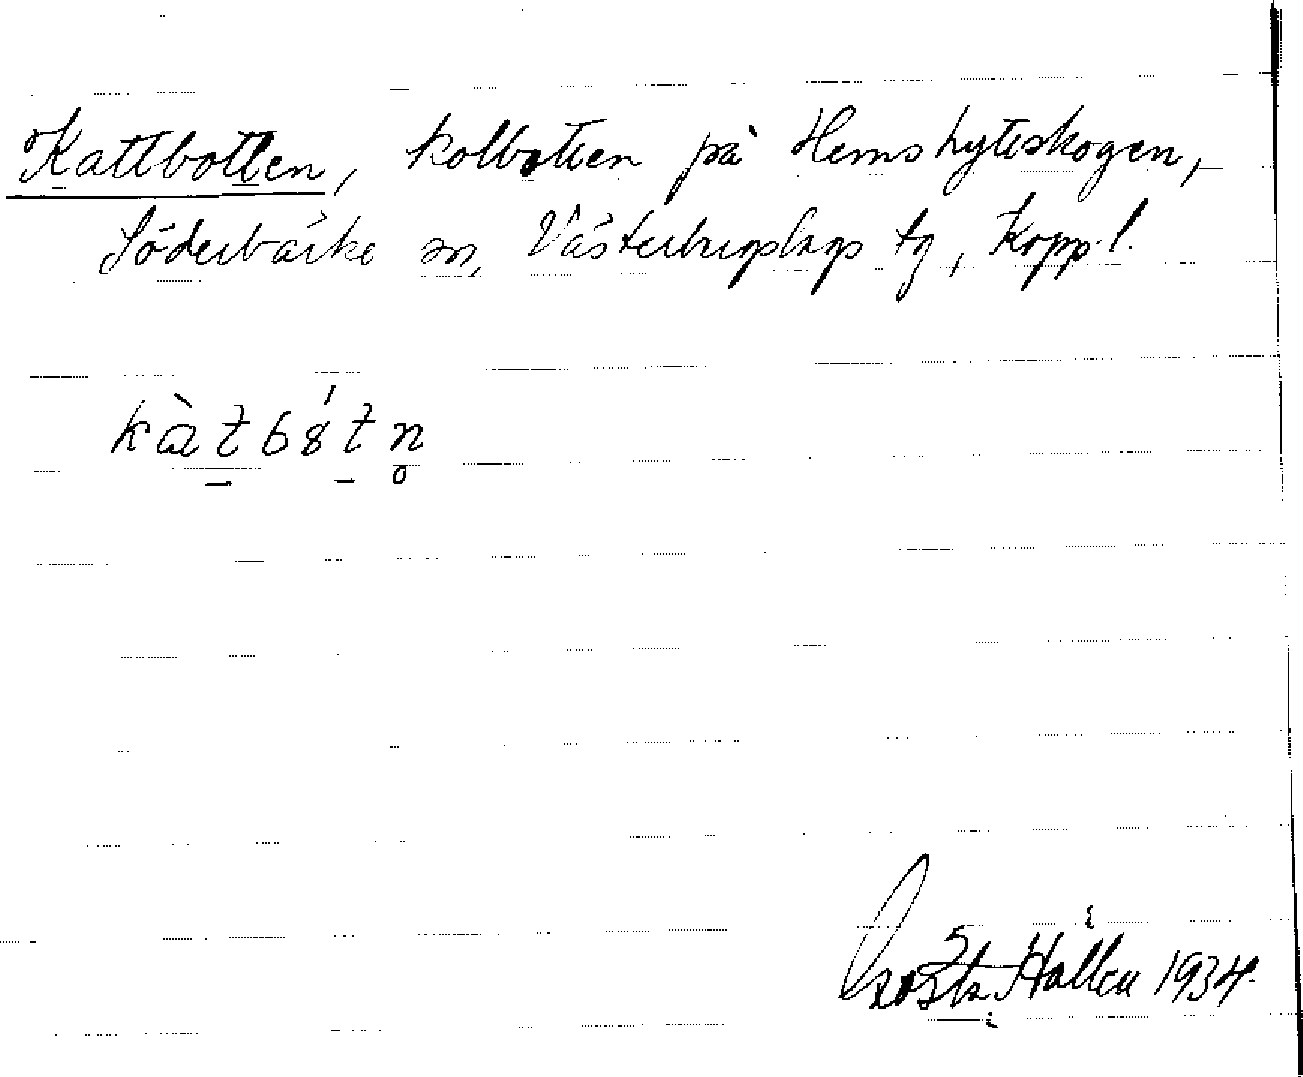 Kattbotten, kolbotten på Hemshytteskogen,
Söderbärke sn, Västerbergslags tg, Kopp. l.
kàtbótn
Gösta Hallén 1934.